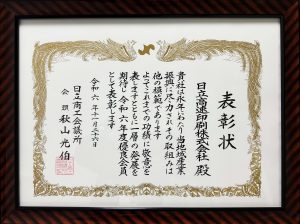 表彰状
日立高速印刷株式会社 殿
貴社は永年にわたり当地域産業
振興に尽力されその取組みは
他の模範であります
よってこれまでの功績に敬意を
表しますとともに一層の発展を
期待し令和六年度優良会員
として表彰します
令和六年十一月二十六日
日立商工会議所
会頭 秋山光伯